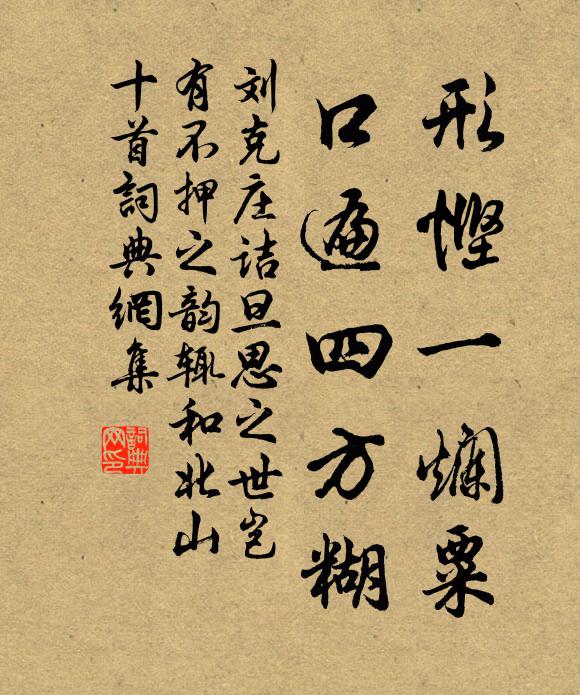 形悭一爛粟
口遍四方糊
刘克庄诘旦思之世岂
有不押之韵辄和北山
十首詞典網集
詞典網印